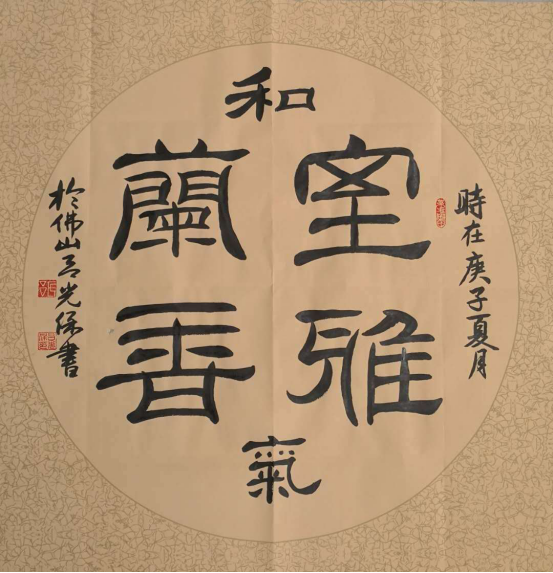 時在庚子夏月
室雅
和
氣
蘭香
於佛山光保書